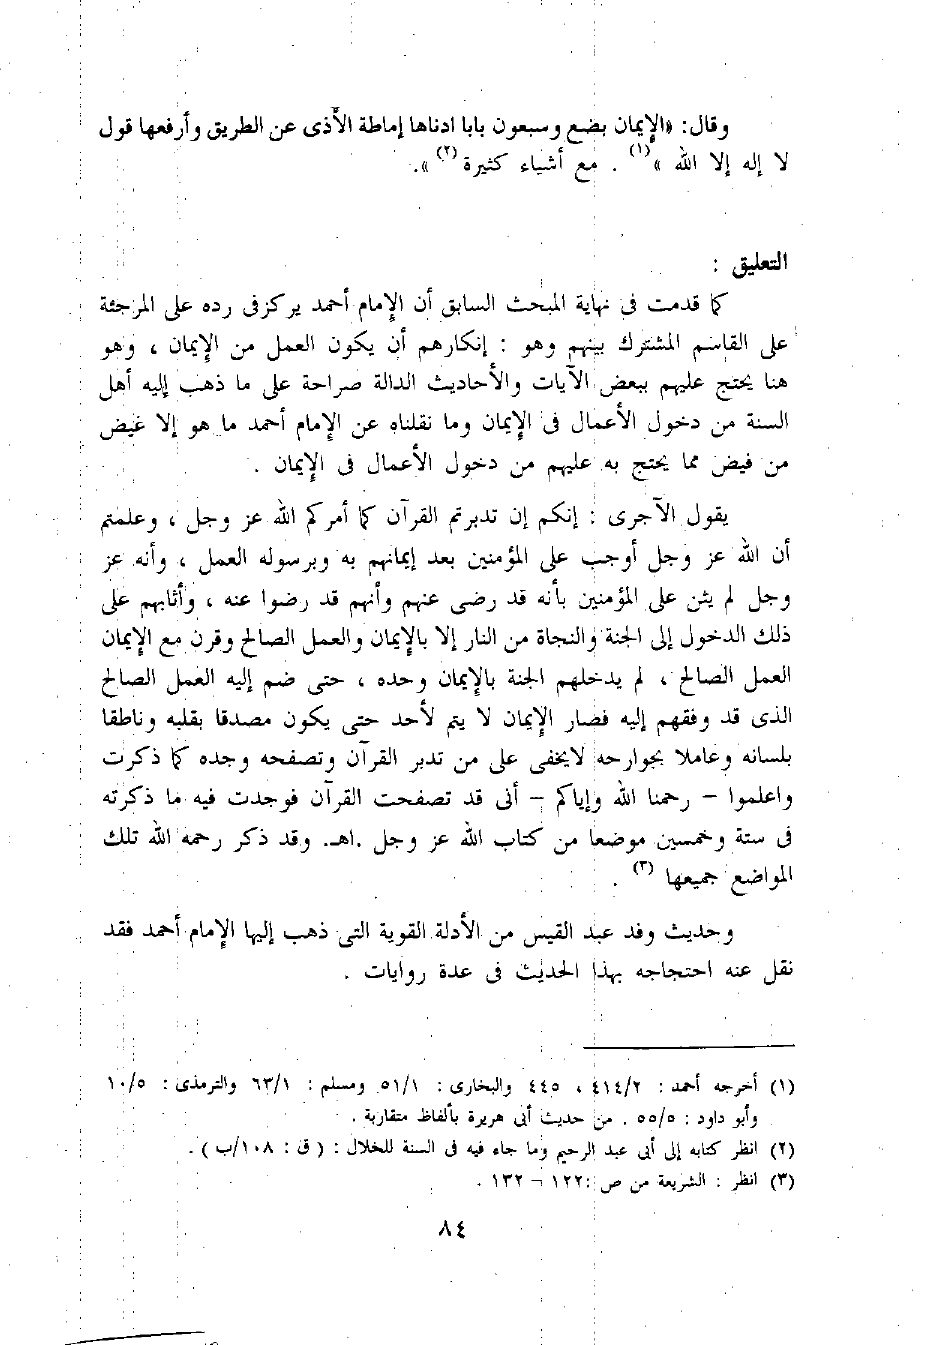 وقال: «الإيمان بضع وسبعون بابا ادناها إماطة الأذى عن الطريق وأرفعها قول
لا إله إلا الله »(١) . مع أشياء كثيرة(٢) ».
التعليق :
كما قدمت فى نهاية المبحث السابق أن الإمام أحمد يركزفى رده على المرجئة
على القاسم المشترك بينهم وهو : إنكارهم أن يكون العمل من الإيمان ، وهو
هنا يحتج عليهم ببعض الآيات والأحاديث الدالة صراحة على ما ذهب إليه أهل
السنة من دخول الأعمال فى الإيمان وما نقلناه عن الإمام أحمد ما هو إلا غيض
من فيض مما يحتج به عليهم من دخول الأعمال فى الإيمان .
يقول الآجرى : إنكم إن تدبرتم القرآن كما أمركم الله عز وجل ، وعلمتم
أن الله عز وجل أوجب على المؤمنين بعد إيمانهم به وبرسوله العمل ، وأنه عز
وجل لم يثن على المؤمنين بأنه قد رضى عنهم وأنهم قد رضوا عنه ، وأثابهم على
ذلك الدخول إلى الجنة والنجاة من النار إلا بالإيمان والعمل الصالح وقرن مع الإيمان
العمل الصالح ، لم يدخلهم الجنة بالإيمان وحده ، حتى ضم إليه العمل الصالح
الذى قد وفقهم إليه فصار الإيمان لا يتم لأحد حتى يكون مصدقا بقلبه وناطقا
بلسانه وعاملا بجوارحه لايخفى على من تدبر القرآن وتصفحه وجده كما ذكرت
واعلموا – رحمنا الله وإياكم – أنى قد تصفحت القرآن فوجدت فيه ما ذكرته
فى ستة وخمسين موضعا من كتاب الله عز وجل .اهـ. وقد ذكر رحمه الله تلك
المواضع جميعها (٣) .
وحديث وفد عبد القيس من الأدلة القوية التى ذهب إليها الإمام أحمد فقد
نقل عنه احتجاجه بهذا الحديث فى عدة روايات .
(١) أخرجه أحمد : ٤١٤/٢ ، ٤٤٥ والبخارى : ٥١/١ ومسلم : ٦٣/١ والترمذى : ١٠/٥
وأبو داود : ٥٥/٥ . من حديث أبى هريرة بألفاظ متقاربة .
(٢) انظر كتابه إلى أبى عبد الرحيم وما جاء فيه فى السنة للخلال : ( ق : ١٠٨/ب ) .
(٣) انظر : الشريعة من ص :١٢٢ – ١٣٢ .
٨٤